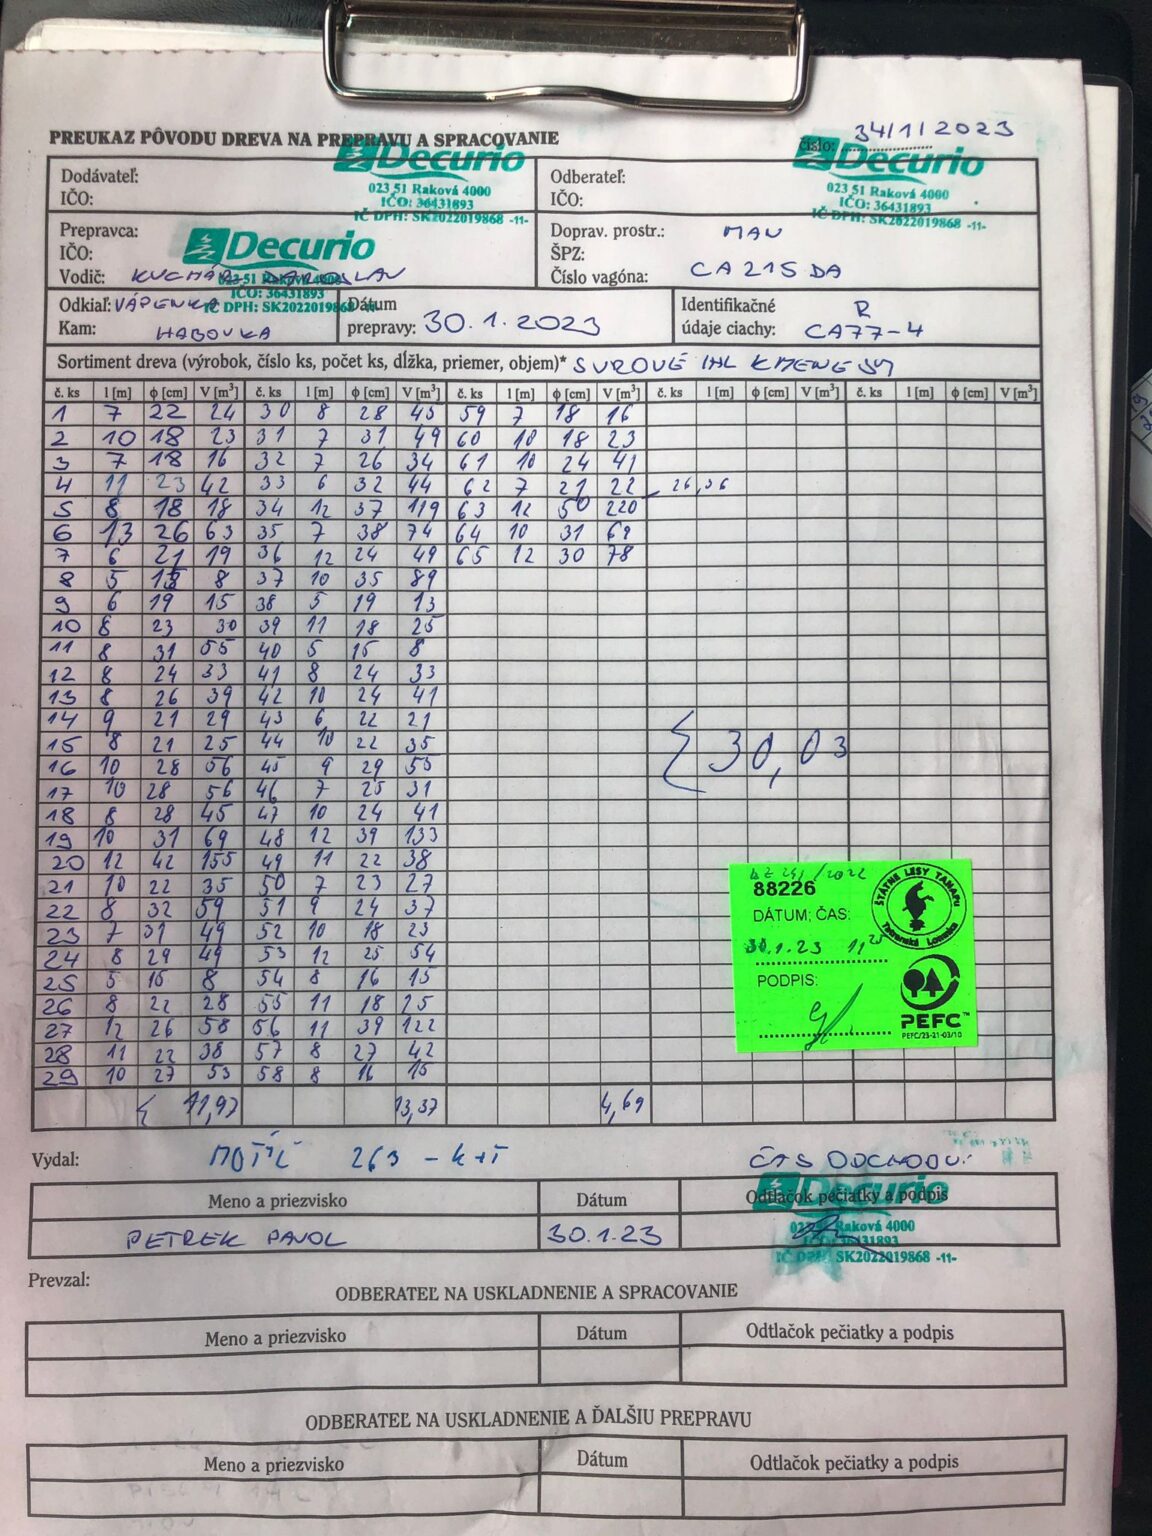 34/1/2023
PREUKAZ PÔVODU DREVA NA PREPRAVU A SPRACOVANIE
číslo:
Decurio
Decurio
Dodávateľ:
IČO:
023 51 Raková 4000
IČO: 36431893
IČ DPH: SK2022019868 -11-
Odberateľ:
IČO:
023 51 Raková 4000
IČO: 36431893
IČ DPH: SK2022019868 -11-
Prepravca:
IČO:
Decurio
Vodič: KUCHÁR
023 51 Raková 4000
IČO: 36431893
IČ DPH: SK2022019868 -11-
Doprav. prostr.: MAN
ŠPZ:
Číslo vagóna: CA215DA
Odkiaľ: VÁPENKA
Kam: HABOVKA
Dátum
prepravy: 30.1.2023
Identifikačné R
údaje ciachy: CA77-4
Sortiment dreva (výrobok, číslo ks, počet ks, dĺžka, priemer, objem)* SUROVÉ IHL KMENE
č. ks l [m] ϕ [cm] V [m³] č. ks l [m] ϕ [cm] V [m³] č. ks l [m] ϕ [cm] V [m³] č. ks l [m] ϕ [cm] V [m³] č. ks l [m] ϕ [cm] V [m³]
1 7 22 24 30 8 28 45 59 7 18 16
2 10 18 23 31 7 31 49 60 10 18 23
3 7 18 16 32 7 26 34 61 10 24 41
4 11 23 42 33 6 32 44 62 7 21 22 26,36
5 8 18 18 34 12 37 119 63 12 50 220
6 13 26 63 35 7 38 74 64 10 31 69
7 6 21 19 36 12 24 49 65 12 30 78
8 5 8 37 10 35 89
9 6 19 15 38 5 19 13
10 8 23 30 39 11 18 25
11 8 31 55 40 5 15 8
12 8 24 33 41 8 24 33
13 8 26 39 42 10 24 41
14 9 21 29 43 6 22 21
15 8 21 25 44 10 22 35 { 30,03
16 10 28 56 45 9 29 55
17 10 28 56 46 7 25 31
18 8 28 45 47 10 24 41
19 10 31 69 48 12 39 133
20 12 42 155 49 11 22 38
21 10 22 35 50 7 23 27
22 8 32 59 51 9 24 37
23 7 31 49 52 10 18 23
24 8 29 49 53 12 25 54
25 5 15 8 54 8 16 15
26 8 22 28 55 11 18 25
27 12 26 58 56 11 39 122
28 11 22 38 57 8 27 42
29 10 27 53 58 8 16 15
11,97 13,37 4,69
88226
DÁTUM; ČAS:
30.1.23 11 25
PODPIS:
ŠTÁTNE LESY TANAPu
Tatranská Lomnica
PEFC™
PEFC/23-21-03/10
Vydal:
263
ČAS ODCHODU:
Meno a priezvisko Dátum Odtlačok pečiatky a podpis
PETREK PAVOL 30.1.23
Decurio
023 51 Raková 4000
IČO: 36431893
IČ DPH: SK2022019868 -11-
Prevzal:
ODBERATEĽ NA USKLADNENIE A SPRACOVANIE
Meno a priezvisko Dátum Odtlačok pečiatky a podpis
ODBERATEĽ NA USKLADNENIE A ĎALŠIU PREPRAVU
Meno a priezvisko Dátum Odtlačok pečiatky a podpis